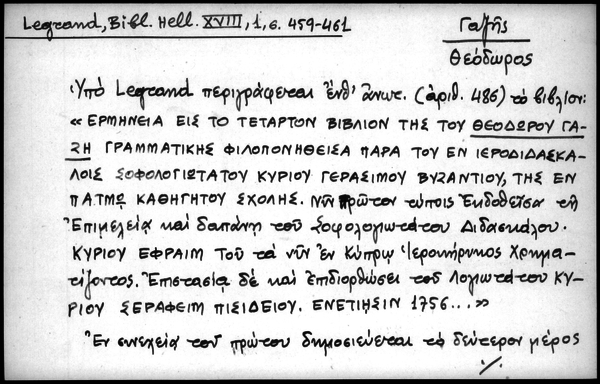 Legrand, Bibl. Hell. XVIII, 1, σ. 459-461
Γαζῆς
Θεόδωρος
Ὑπὸ Legrand περιγράφεται ἔνθ' ἄνωτ. (ἀριθ. 486) τὸ βιβλίον:
« ΕΡΜΗΝΕΙΑ ΕΙΣ ΤΟ ΤΕΤΑΡΤΟΝ ΒΙΒΛΙΟΝ ΤΗΣ ΤΟΥ ΘΕΟΔΩΡΟΥ ΓΑ-
ΖΗ ΓΡΑΜΜΑΤΙΚΗΣ ΦΙΛΟΠΟΝΗΘΕΙΣΑ ΠΑΡΑ ΤΟΥ ΕΝ ΙΕΡΟΔΙΔΑΣΚΑ-
ΛΟΙΣ ΣΟΦΟΛΟΓΙΩΤΑΤΟΥ ΚΥΡΙΟΥ ΓΕΡΑΣΙΜΟΥ ΒΥΖΑΝΤΙΟΥ, ΤΗΣ ΕΝ
ΠΑΤΜῼ ΚΑΘΗΓΗΤΟΥ ΣΧΟΛΗΣ. Νῦν πρῶτον τύποις Ἐκδοθεῖσα τῇ
Ἐπιμελείᾳ καὶ δαπάνῃ τοῦ Σοφολογιωτάτου Διδασκάλου.
ΚΥΡΙΟΥ ΕΦΡΑΙΜ Τοῦ τὰ νῦν ἐν Κύπρῳ Ἱεροκήρυκος Χρημα-
τίζοντος. Ἐπιστασίᾳ δὲ καὶ ἐπιδιορθώσει τοῦ Λογιωτάτου ΚΥ-
ΡΙΟΥ ΣΕΡΑΦΕΙΜ ΠΙΣΙΔΕΙΟΥ. ΕΝΕΤΙΗΣΙΝ 1756...»
Ἐν συνεχείᾳ τοῦ πρώτου δημοσιεύεται τὸ δεύτερον μέρος
./.